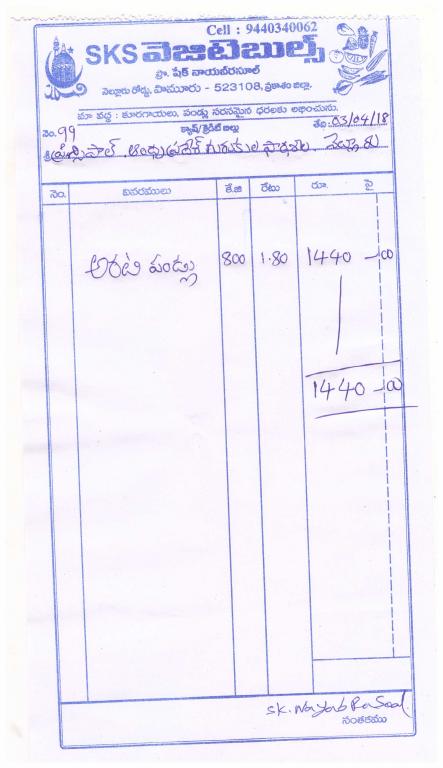 Cell : 9440340062
SKS వెజిటెబుల్స్
ప్రొ. షేక్ నాయబ్‌రసూల్
నెల్లూరు రోడ్డు, పామూరు - 523108, ప్రకాశం జిల్లా.
మా వద్ద : కూరగాయలు, పండ్లు సరసమైన ధరలకు లభించును.
నెం. 99 క్యాష్/క్రెడిట్ బిల్లు తేది 03/04/18
శ్రీ ప్రిన్సిపాల్, ఆంధ్రప్రదేశ్ గురుకుల పాఠశాల,
నెం. వివరములు కే.జి రేటు రూ. పై
అరటి పండ్లు 800 1.80 1440 -00
1440 -00
SK. Nayab Rasool
సంతకము